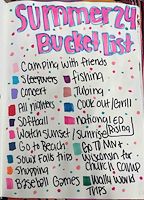 Summer 24
Bucket list
Camping with friends
Sleepovers
fishing
concert
Tubing
All nighters
Cook out/Grill
Softball
national EO
Rising
Watch Sunset/Sunrise
Go to Beach
Go TO MN +
Wisconsin for
Church Camp
Soux Falls trips
Shopping
Baseball Games
Wally World
Trips